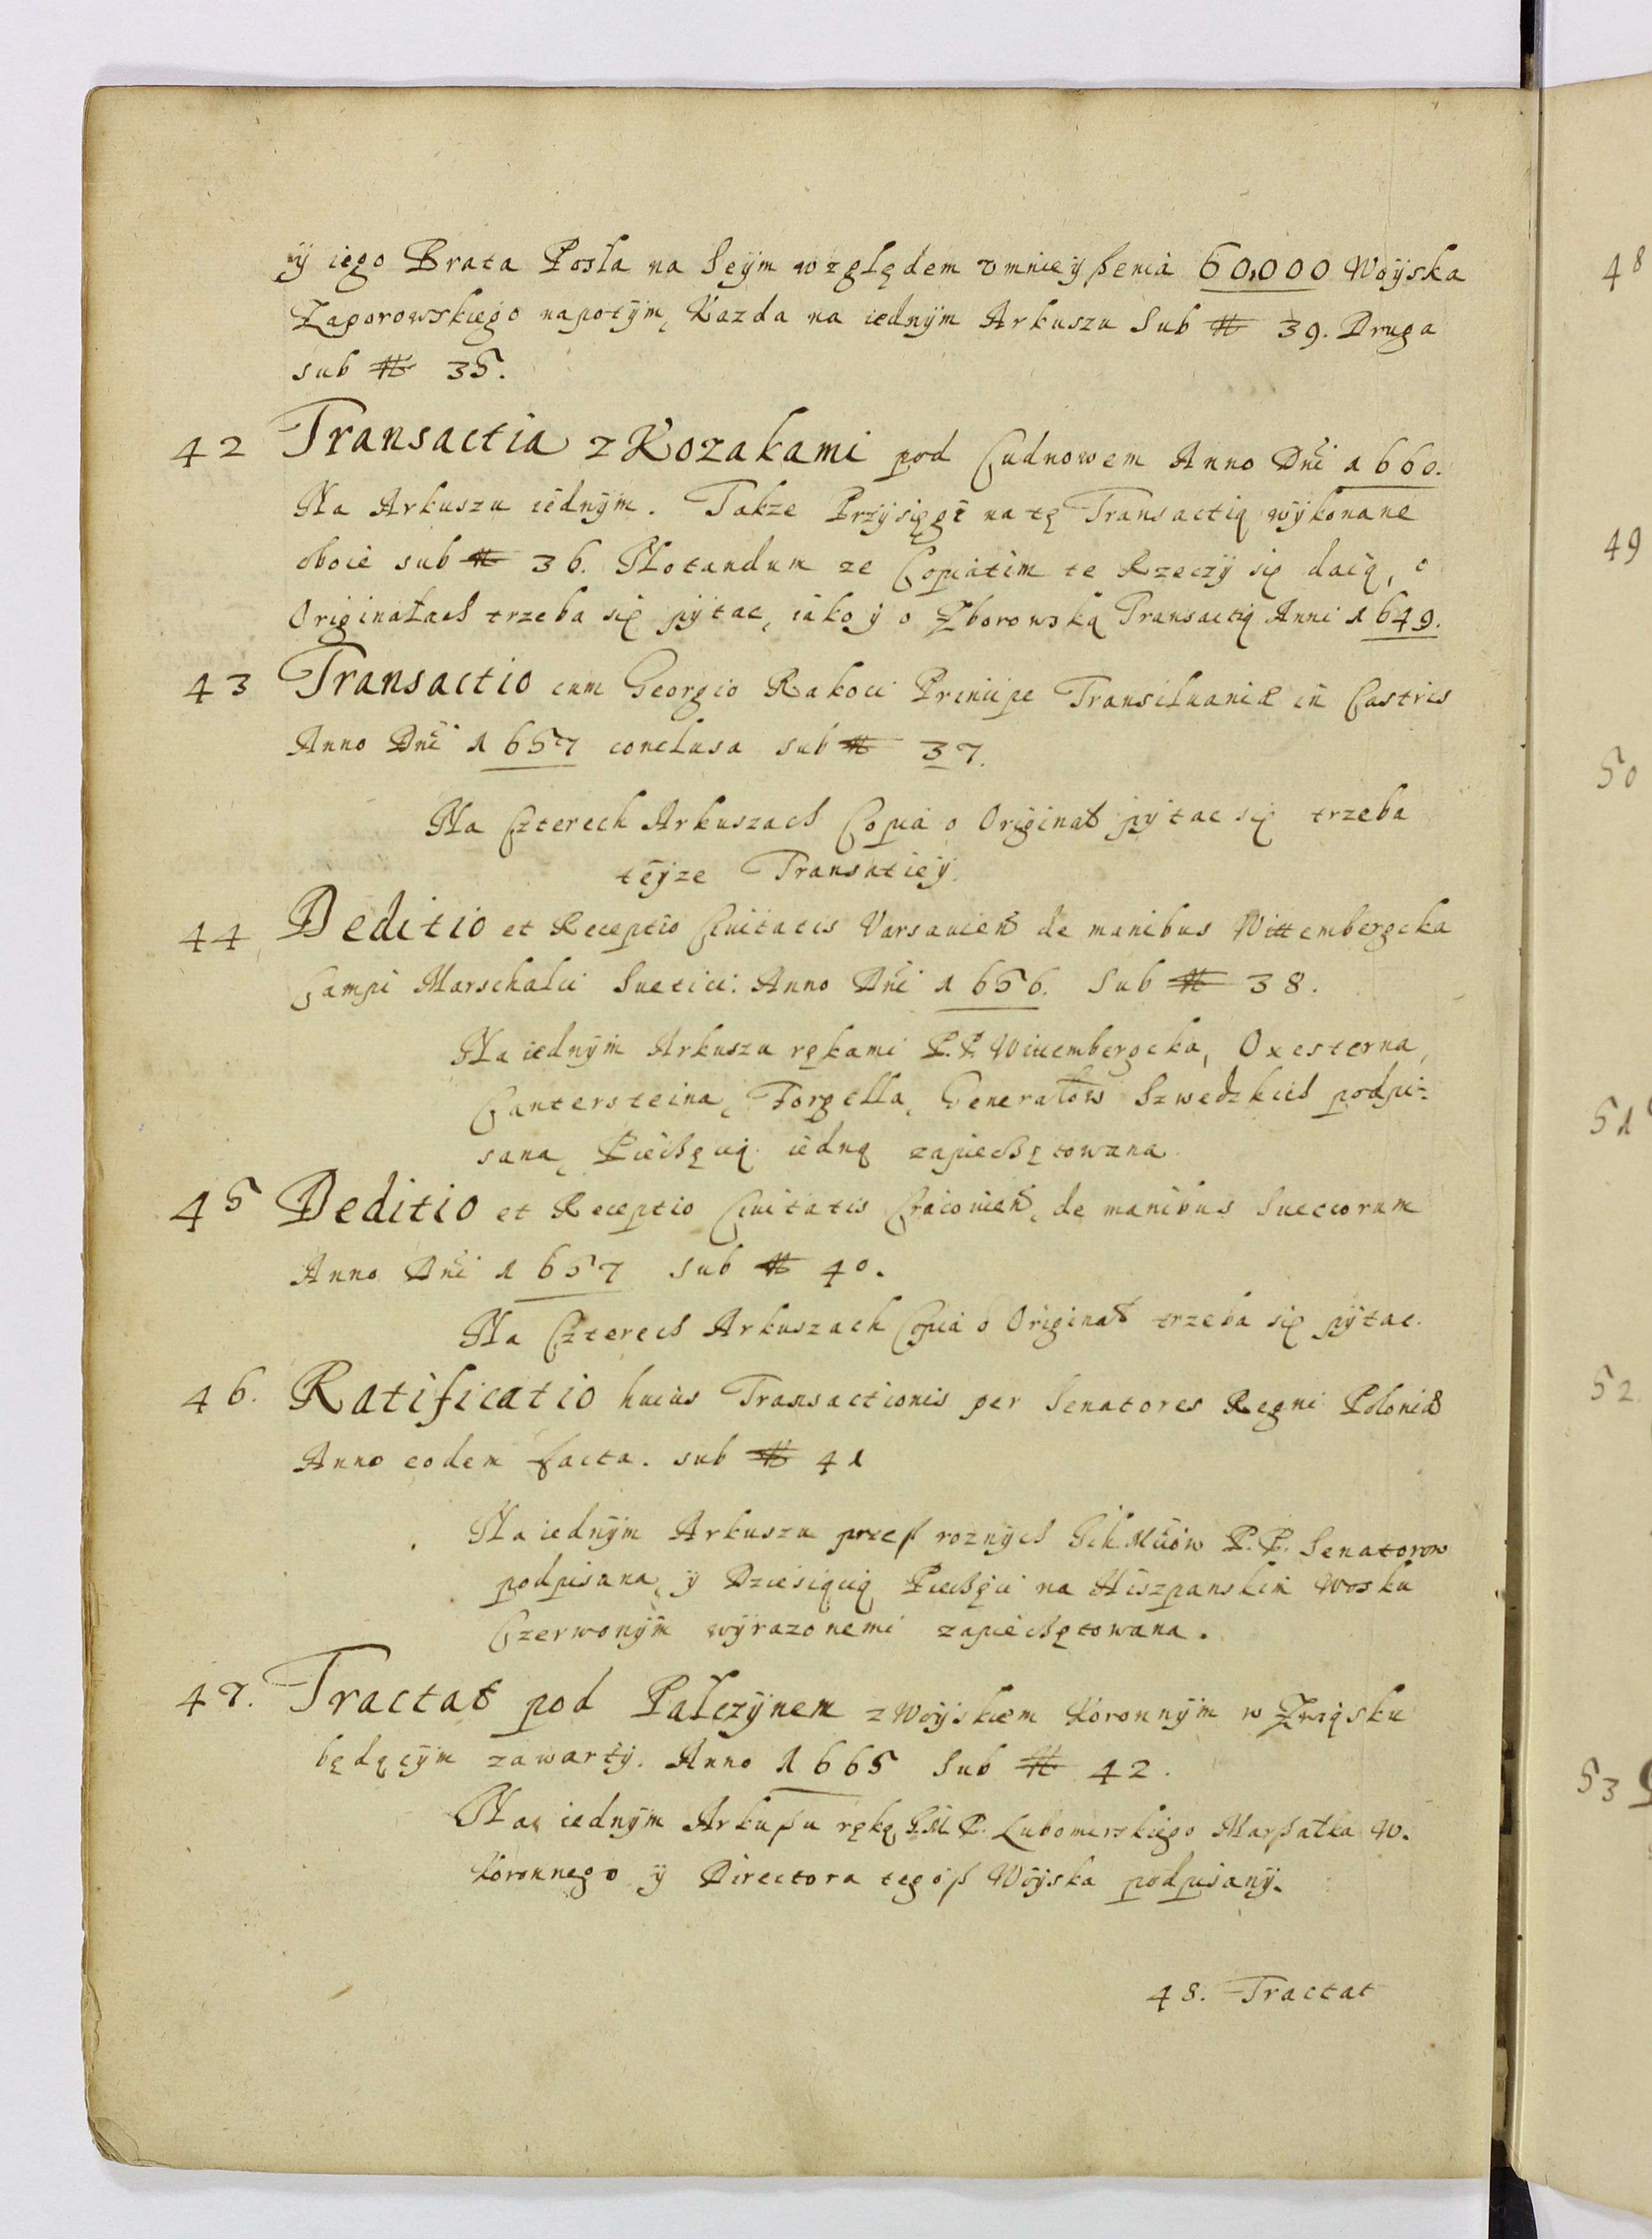 ÿ iego Brata Posła na Seÿm względem vmnieÿßenia 60,000 Woÿska
Zaporowskiego napotÿm, Kazda na iednÿm Arkuszu Sub # 39. Druga
sub # 35.
42 Transactia z Kozakami pod Cudnowem Anno Dni 1660.
Na Arkuszu iednÿm. Takze Przÿsięgi na tę Transactią wÿkonane
oboie sub # 36. Notandum ze Copiatim te Rzeczÿ się daią, o
Originałach trzeba się pÿtac, iako ÿ o Zborowską Transactią Anni 1649.
43 Transactio cum Georgio Rakoci Principe Transiluaniæ in Castris
Anno Dni 1657 conclusa sub # 37.
Na Czterech Arkuszach Copia o Originał pÿtac się trzeba
teÿze Transatieÿ.
44 Deditio et Receptio Ciuitatis Varsauien de manibus Wittembergcka
Campi Marschalci Suetici: Anno Dni 1656. Sub # 38.
Na iednÿm Arkuszu rękami P.P. Wittembergcka, Oxesterna,
Cantersteina, Forgella, Generałow Szwedzkich podpi-
sana, Piechęcią iedną zapiechętowana.
45 Deditio et Receptio Ciuitatis Cracouien, de manibus Suecorum
Anno Dni 1657 Sub # 40.
Na Czterech Arkuszach Copia o Originał trzeba się pÿtac.
46. Ratificatio huius Transactionis per Senatores Regni Poloniæ
Anno eodem facta. sub # 41
Na iednÿm Arkuszu przeß roznÿch Ich Mciow P.P. Senatorow
podpisana, ÿ Dziesiącią Piechęci na Hiszpanskim Wosku
Czerwonÿm wÿrazonemi zapiechętowana.
47. Tractat pod Pałczÿnem z Woÿskiem Koronnÿm w Związku
będęcÿm zawartÿ. Anno 1665 Sub # 42.
Na iednÿm Arkußu ręką I.M.P. Lubomirskiego Marßałka W.
Koronnego ÿ Directora tegoß Woÿska podpisanÿ.
48. Tractat
48
49
50
51
52
53